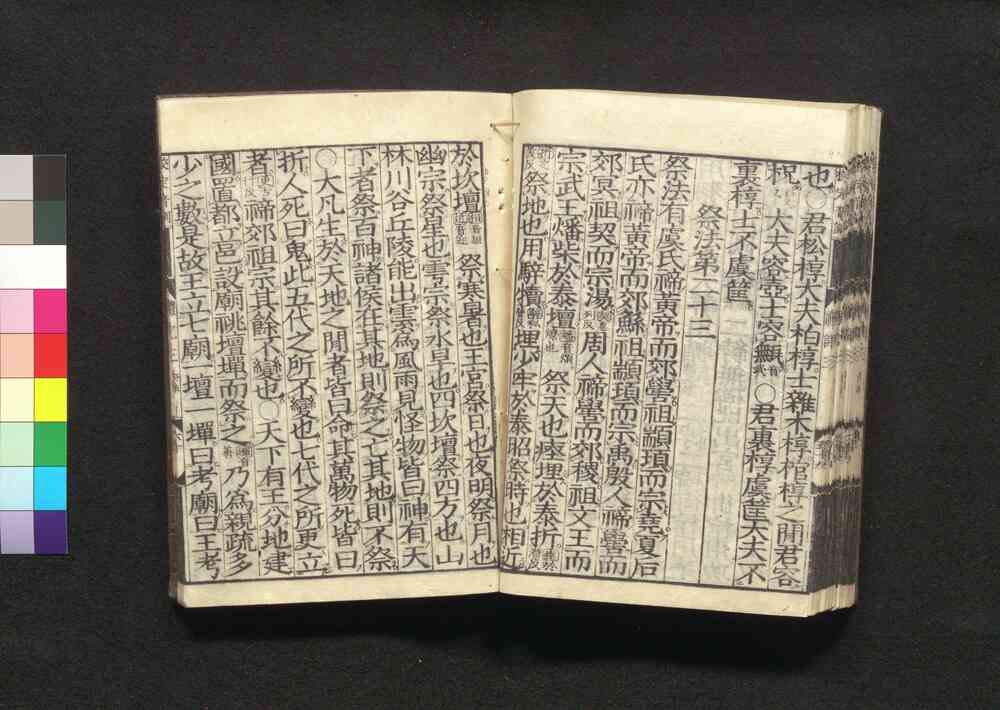 也○君松椁大夫柏椁士雜木椁棺椁之間君容
柷大夫容壺士容甒○君裏椁虞筐大夫不
裏椁士不虞筐
祭法第二十三
祭法有虞氏禘黃帝而郊嚳祖顓頊而宗堯夏后
氏亦禘黃帝而郊鯀祖顓頊而宗禹殷人禘嚳而
郊冥祖契而宗湯周人禘嚳而郊稷祖文王而
宗武王燔柴於泰壇祭天也瘞埋於泰折
祭地也用騂犢埋少牢於泰昭祭時也相近
於坎壇祭寒暑也王宮祭日也夜明祭月也
幽宗祭星也雩宗祭水旱也四坎壇祭四方也山
林川谷丘陵能出雲爲風雨見怪物皆曰神有天
下者祭百神諸侯在其地則祭之亡其地則不祭
○大凡生於天地之間者皆曰命其萬物死皆曰
折人死曰鬼此五代之所不變也七代之所更立
者禘郊祖宗其餘不變也○天下有王分地建
國置都立邑設廟祧壇墠而祭之乃爲親疏多
少之數是故王立七廟一壇一墠曰考廟曰王考